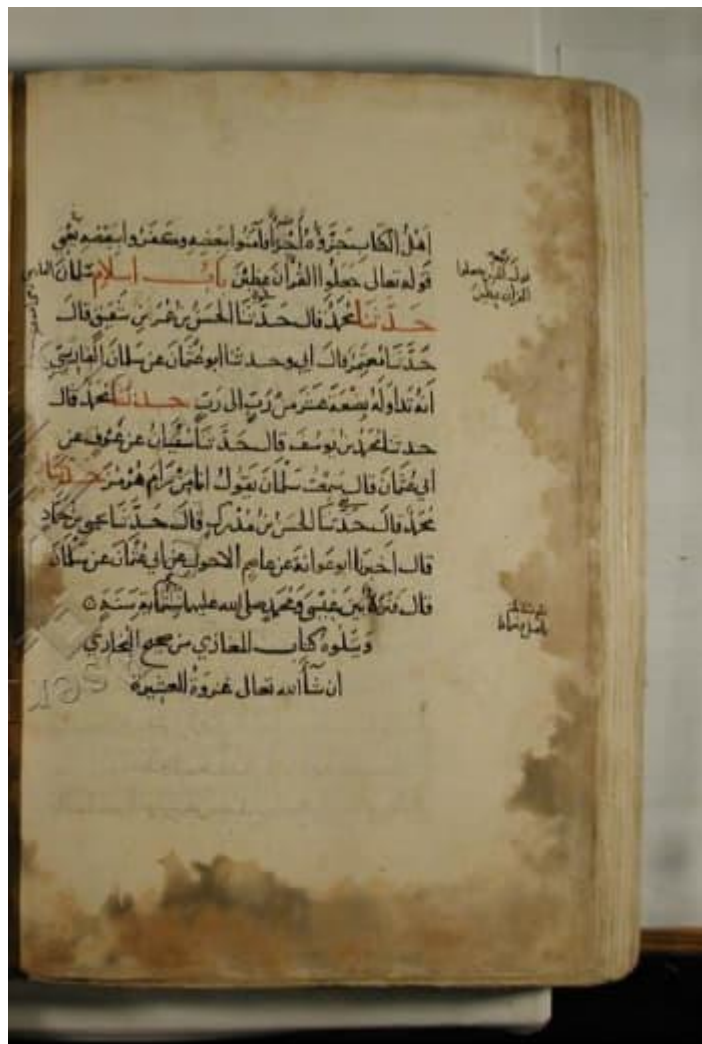 اهْلُ الكتاب جَزَّؤُهُ أَجْزَاءً فآمَنُوا ببعضِهِ وكَفَرُوا ببَعْضِهِ يَعْني
قوله تعالى جعلوا القُرآنَ عِضِينَ بابُ اسلام سَلْمانَ الفارسي
حدَّثنا مُحمَّدٌ قال حَدَّثنَا الحَسَنُ بن عُمَرَ بن شَقِيقٍ قال
حَدَّثنَا مُعتَمِرٌ قال ابي وحدثنا ابو عُثْمَانَ عن سَلْمَانَ الفَارِسِيِّ
انهُ تَدَاوَلَهُ بِضْعَةَ عَشَرَ مِنْ رَبٍّ الى رَبٍّ حدثنا مُحمَّدٌ قال
حدثنا مُحمَّدُ بن يُوسُفَ قال حَدَّثنَا سُفْيَانُ عن عَوْفٍ عن
ابي عُثْمَانَ قال سَمِعْتُ سَلْمَانَ يَقُولُ انا مِنْ رَامَ هُرْمُزَ حدثنا
مُحمَّدٌ قال حَدَّثَنَا الحَسَنُ بن مُدْرِكٍ قال حَدَّثنَا يحيى بن حَمَّادٍ
قال اخبرنا ابو عوانة عن عاصم الاحول عن ابي عُثْمَانَ عن سَلْمَانَ
قال فَتْرَةٌ بَيْنَ عِيْسَى ومُحَمَّدٍ صلى الله عليهما ستمائة سَنَةٍ
ويتلوه كتاب المغازي من صحيح البخاري
ان شآء الله تعالى غزوة العشيرة